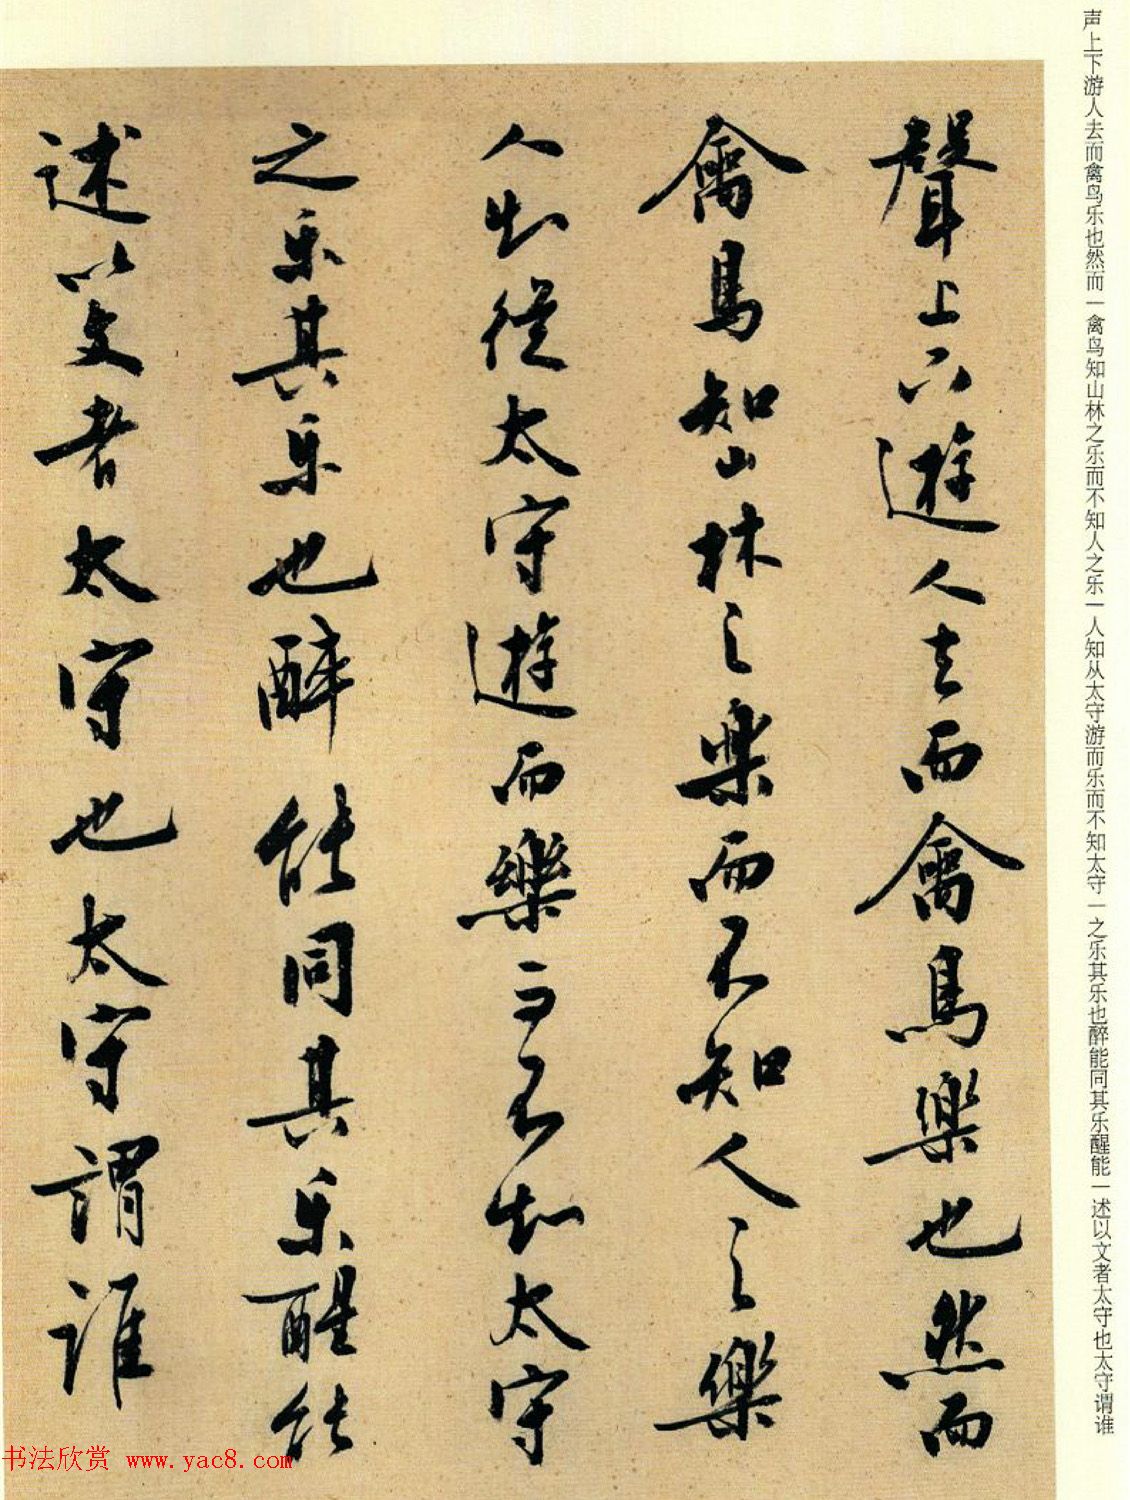 聲上下遊人去而禽鳥樂也然而
禽鳥知山林之樂而不知人之樂
人知從太守遊而樂而不知太守
之乐其乐也醉能同其乐醒能
述以文者太守也太守謂誰
声上下游人去而禽鸟乐也然而一禽鸟知山林之乐而不知人之乐一人知从太守游而乐而不知太守一之乐其乐也醉能同其乐醒能一述以文者太守也太守谓谁
书法欣赏 www.yac8.com